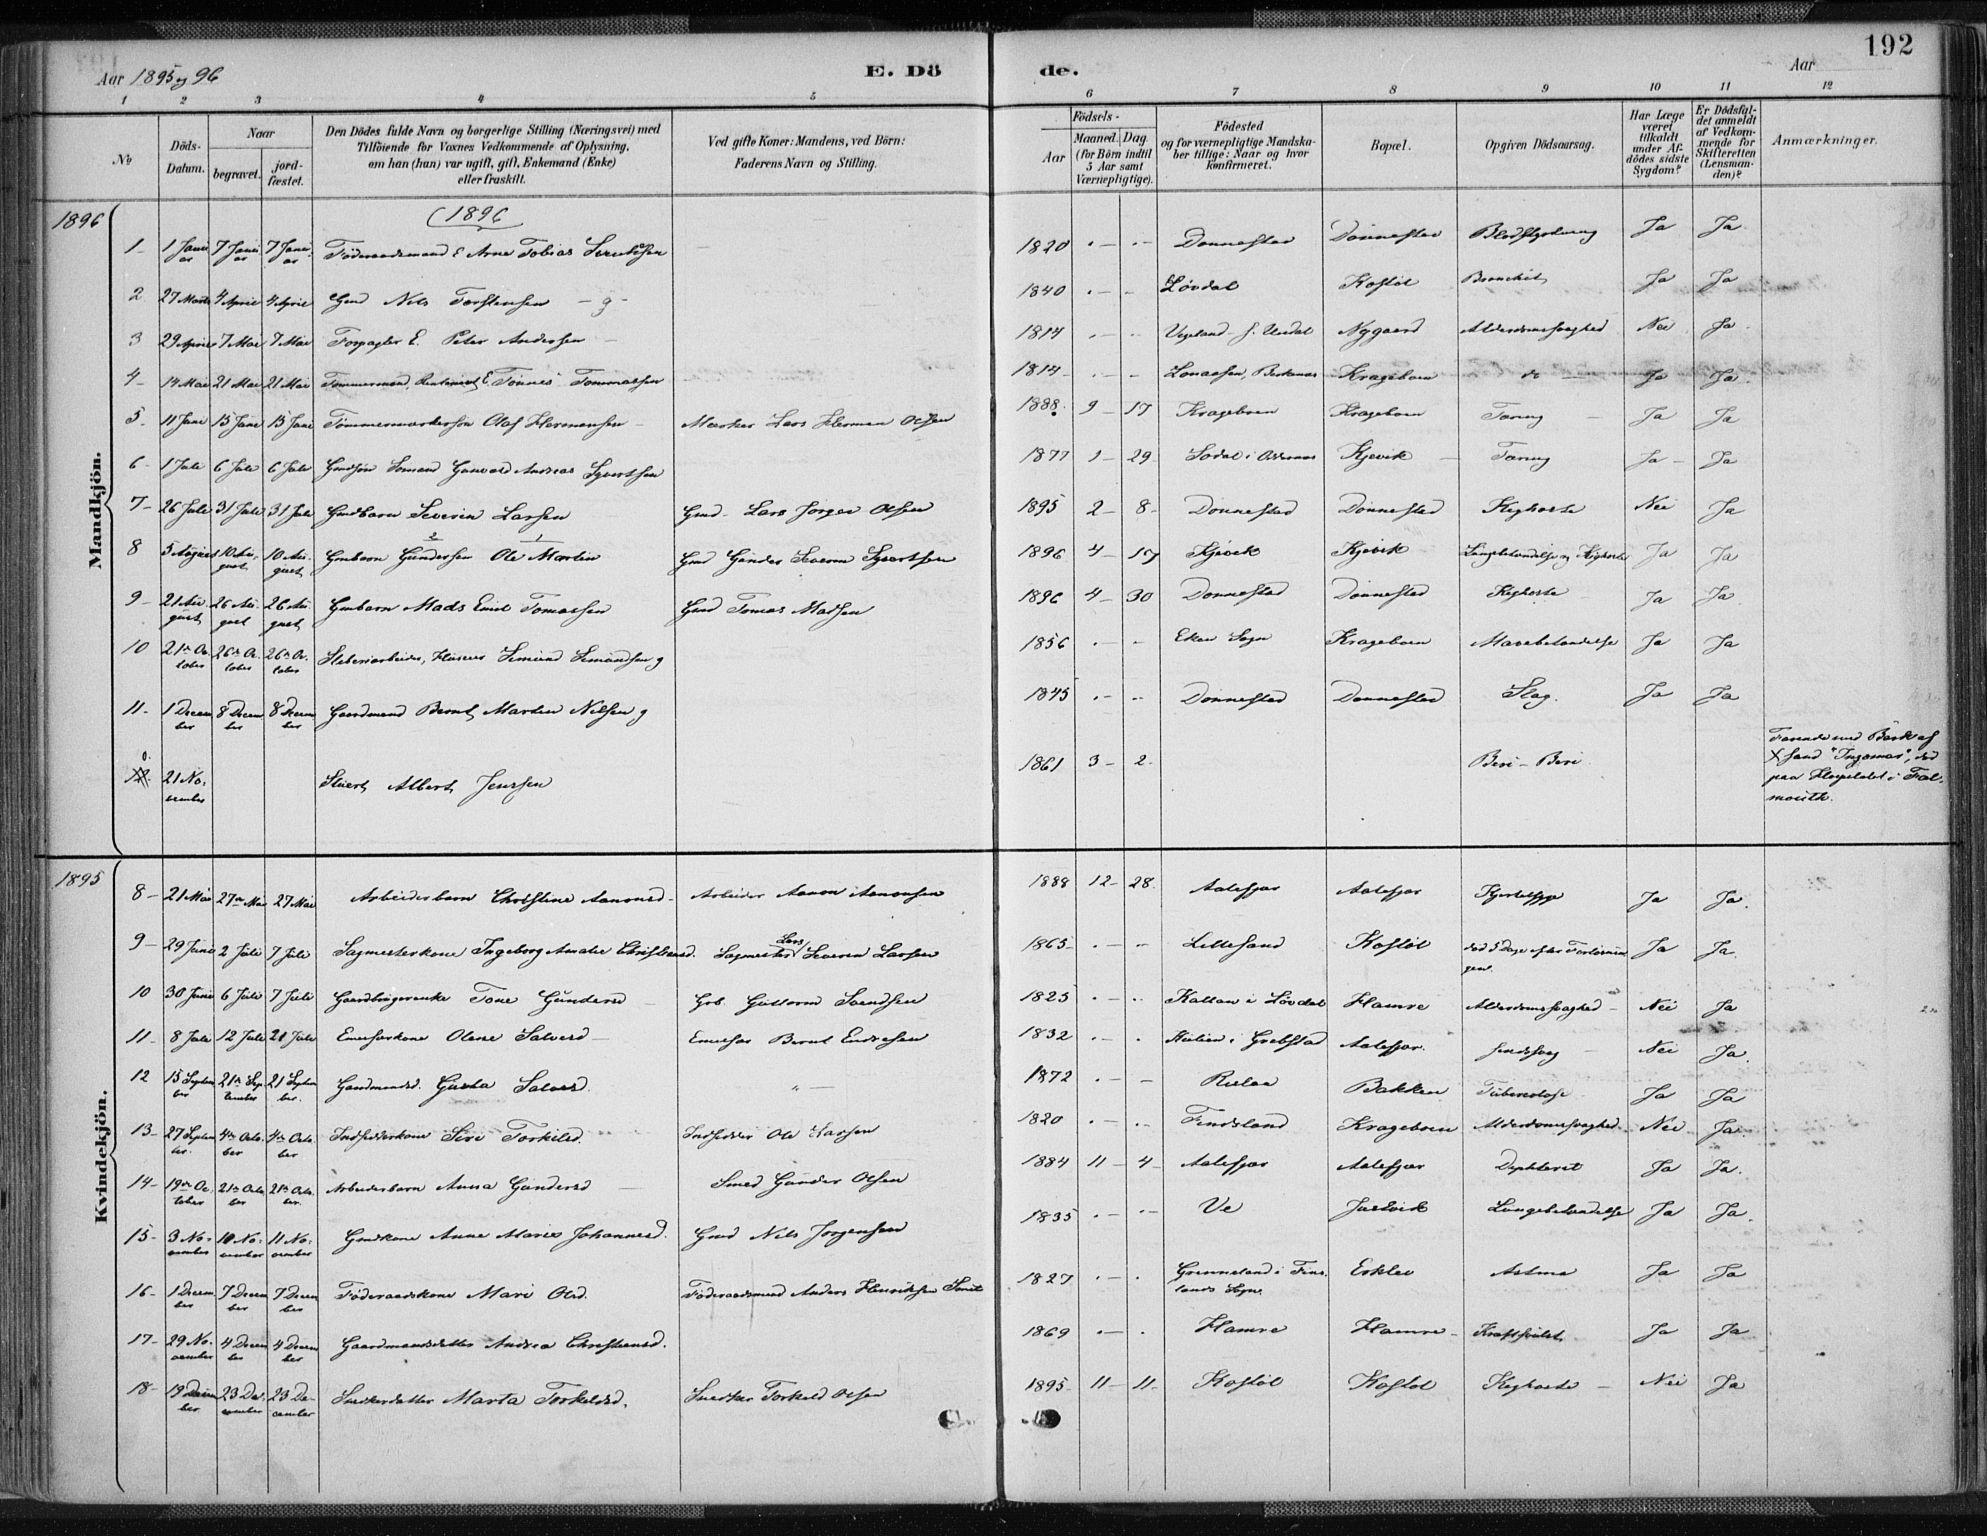 192
Aar 1895 og 96 E. Dö de. Aar
1 2 3 4 5 6 7 8 9 10 11 12
No
Döds-Datum.
Naar
begravet. jordfæstet.
Den Dödes fulde Navn og borgerlige Stilling (Næringsvei) med
Tilföiende for Voxnes Vedkommende af Oplysning,
om han (hun) var ugift, gift, Enkemand (Enke)
eller fraskilt.
Ved gifte Koner: Mandens, ved Börn:
Faderens Navn og Stilling.
Födsels-
Aar Maaned. Dag
(for Börn indtil
5 Aar samt
Værnepligtige).
Födested
og for værnepligtige Mandskaber tillige: Naar og hvor
konfirmeret.
Bopæl.
Opgiven Dödsaarsag.
Har Læge
været
tilkaldt
under Afdödes sidste
Sygdom?
Er Dödsfaldet anmeldt
af Vedkommende for
Skifteretten
(Lensmanden)?
Anmærkninger.
Mandkjön.
1896
1896
1 1 Januar 7 Januar 7 Januar Föderaadsmand E Arne Tobias 1820 Donnestad Donnestad Blodstyrtning Ja Ja
2 27 Marts 4 April 4 April Gmd Nils Torstensen g 1840 Lövdal Kostöl Ja Ja
3 29 April 7 Mai 7 Mai Forpagter E. Peter Andersen 1814 Nygaard Alderdomssvaghed Nei Ja
4 14 Mai 21 Mai 21 Mai Tömmermand, E. Tönnes Tommassen 1814 Krageboen do Ja Ja
5 11 Juni 15 Juni 15 Juni Tömmermerkersön Olaf Hermansen Merker Lars Herman Olsen 1888 9 17 Krageboen Krageboen Tæring Ja Ja
6 1 Juli 6 Juli 6 Juli Gmdsön Sömand Gunvald Andreas Syvertsen 1877 1 29 Södal i Oddernes Kjevik Tæring Ja Ja
7 26 Juli 31 Juli 31 Juli Gmdbarn Severin Larsen Gmd Lars Jörgen Olsen 1895 2 8 Donnestad Donnestad Kighoste Nei Ja
8 5 August 10 August 10 August Gmbarn Gundersen Ole Martin Gmd Gunder Severin Syvertsen 1896 4 17 Kjevik Kjevik Lungebetændelse og Kighoste Ja Ja
9 21 August 26 August 26 August Gmbarn Mads Emil Tomassen Gmd Tomas Madsen 1896 4 30 Donnestad Donnestad Kighoste Ja Ja
10 21de October 26de October 26de October Sliberiarbeider, Semund Semundsen g 1856 Eken Sogn Krageboen Mavebetændelse Ja Ja
11 1 December 8 December 8 December Gaardmand Bernt Martin Nilsen g 1845 Donnestad Donnestad Slag. Ja Ja
21 November Stuert Albert Jensen 1861 3 2 Beri-Beri Farende med Bark af
X sand "Ingomar", död
paa Hospitalet i Falmouth.
Kvindekjön.
1895
8 21 Mai 27de Mai 27 Mai Arbeiderbarn Christine Aanonsd. Arbeider Aanon Aanonsen 1888 12 28 Aalefjær Aalefjær Ja Ja.
9 29 Juni 2 Juli 7 Juli Sagmesterkone Ingeborg Amalie Christensd. Sagmester Lars Severin Larsen 1865 Lillesand Kostöl död 5 Dage efter Forlösningen. Ja Ja.
10 30 Juni 6 Juli 7 Juli Gaardbrugerenke Tone Gundersd Grb. Guttorm Svendsen 1825 Hamre Alderdomssvaghed Nei Ja
11 8 Juli 12 Juli 21 Juli Olene Salvesd Bernt Endresen 1832 Aalefjær. Sindssvag Nei Ja.
12 15 September 21de September 21 September Gaardmandsd. Gusta Salvesd. 1872 Bakken Tuberculose Ja Ja
13 27 September 4de October 4de October Indsidderkone Siri Torkilsd. Indsidder Ole Larsen 1820 Findsland Krageboen Alderdomssvaghed Nei Ja.
14 19de October 21de October 21de October Arbeiderbarn Anna Gundersd Smed Gunder Olsen 1884 11 4 Aalefjær Aalefjær Diphterit Ja Ja.
15 3 November 10 November 11 November Gmdkone Anne Marie Johannesd. Gmd Nils Jörgensen 1835 Ve Justvik Lungebetændelse Ja Ja.
16 1 December 7 December 7 December Föderaadskone Mari Olsd. Föderaadsmand Anders Henriksen 1827 Grenneland i Finslands Sogn. Erklev Astma Ja Ja
17 29 November 4 December 4 December Gaardmandsdatter Andrea Christensd. 1869 Hamre Hamre Kræftsvulst Ja Ja
18 19 December 23 December 23 December Snedkerdatter Marta Torkelsd. Snedker Torkeld Olsen 1895 11 11 Kostöl Kostöl Kighoste Nei Ja